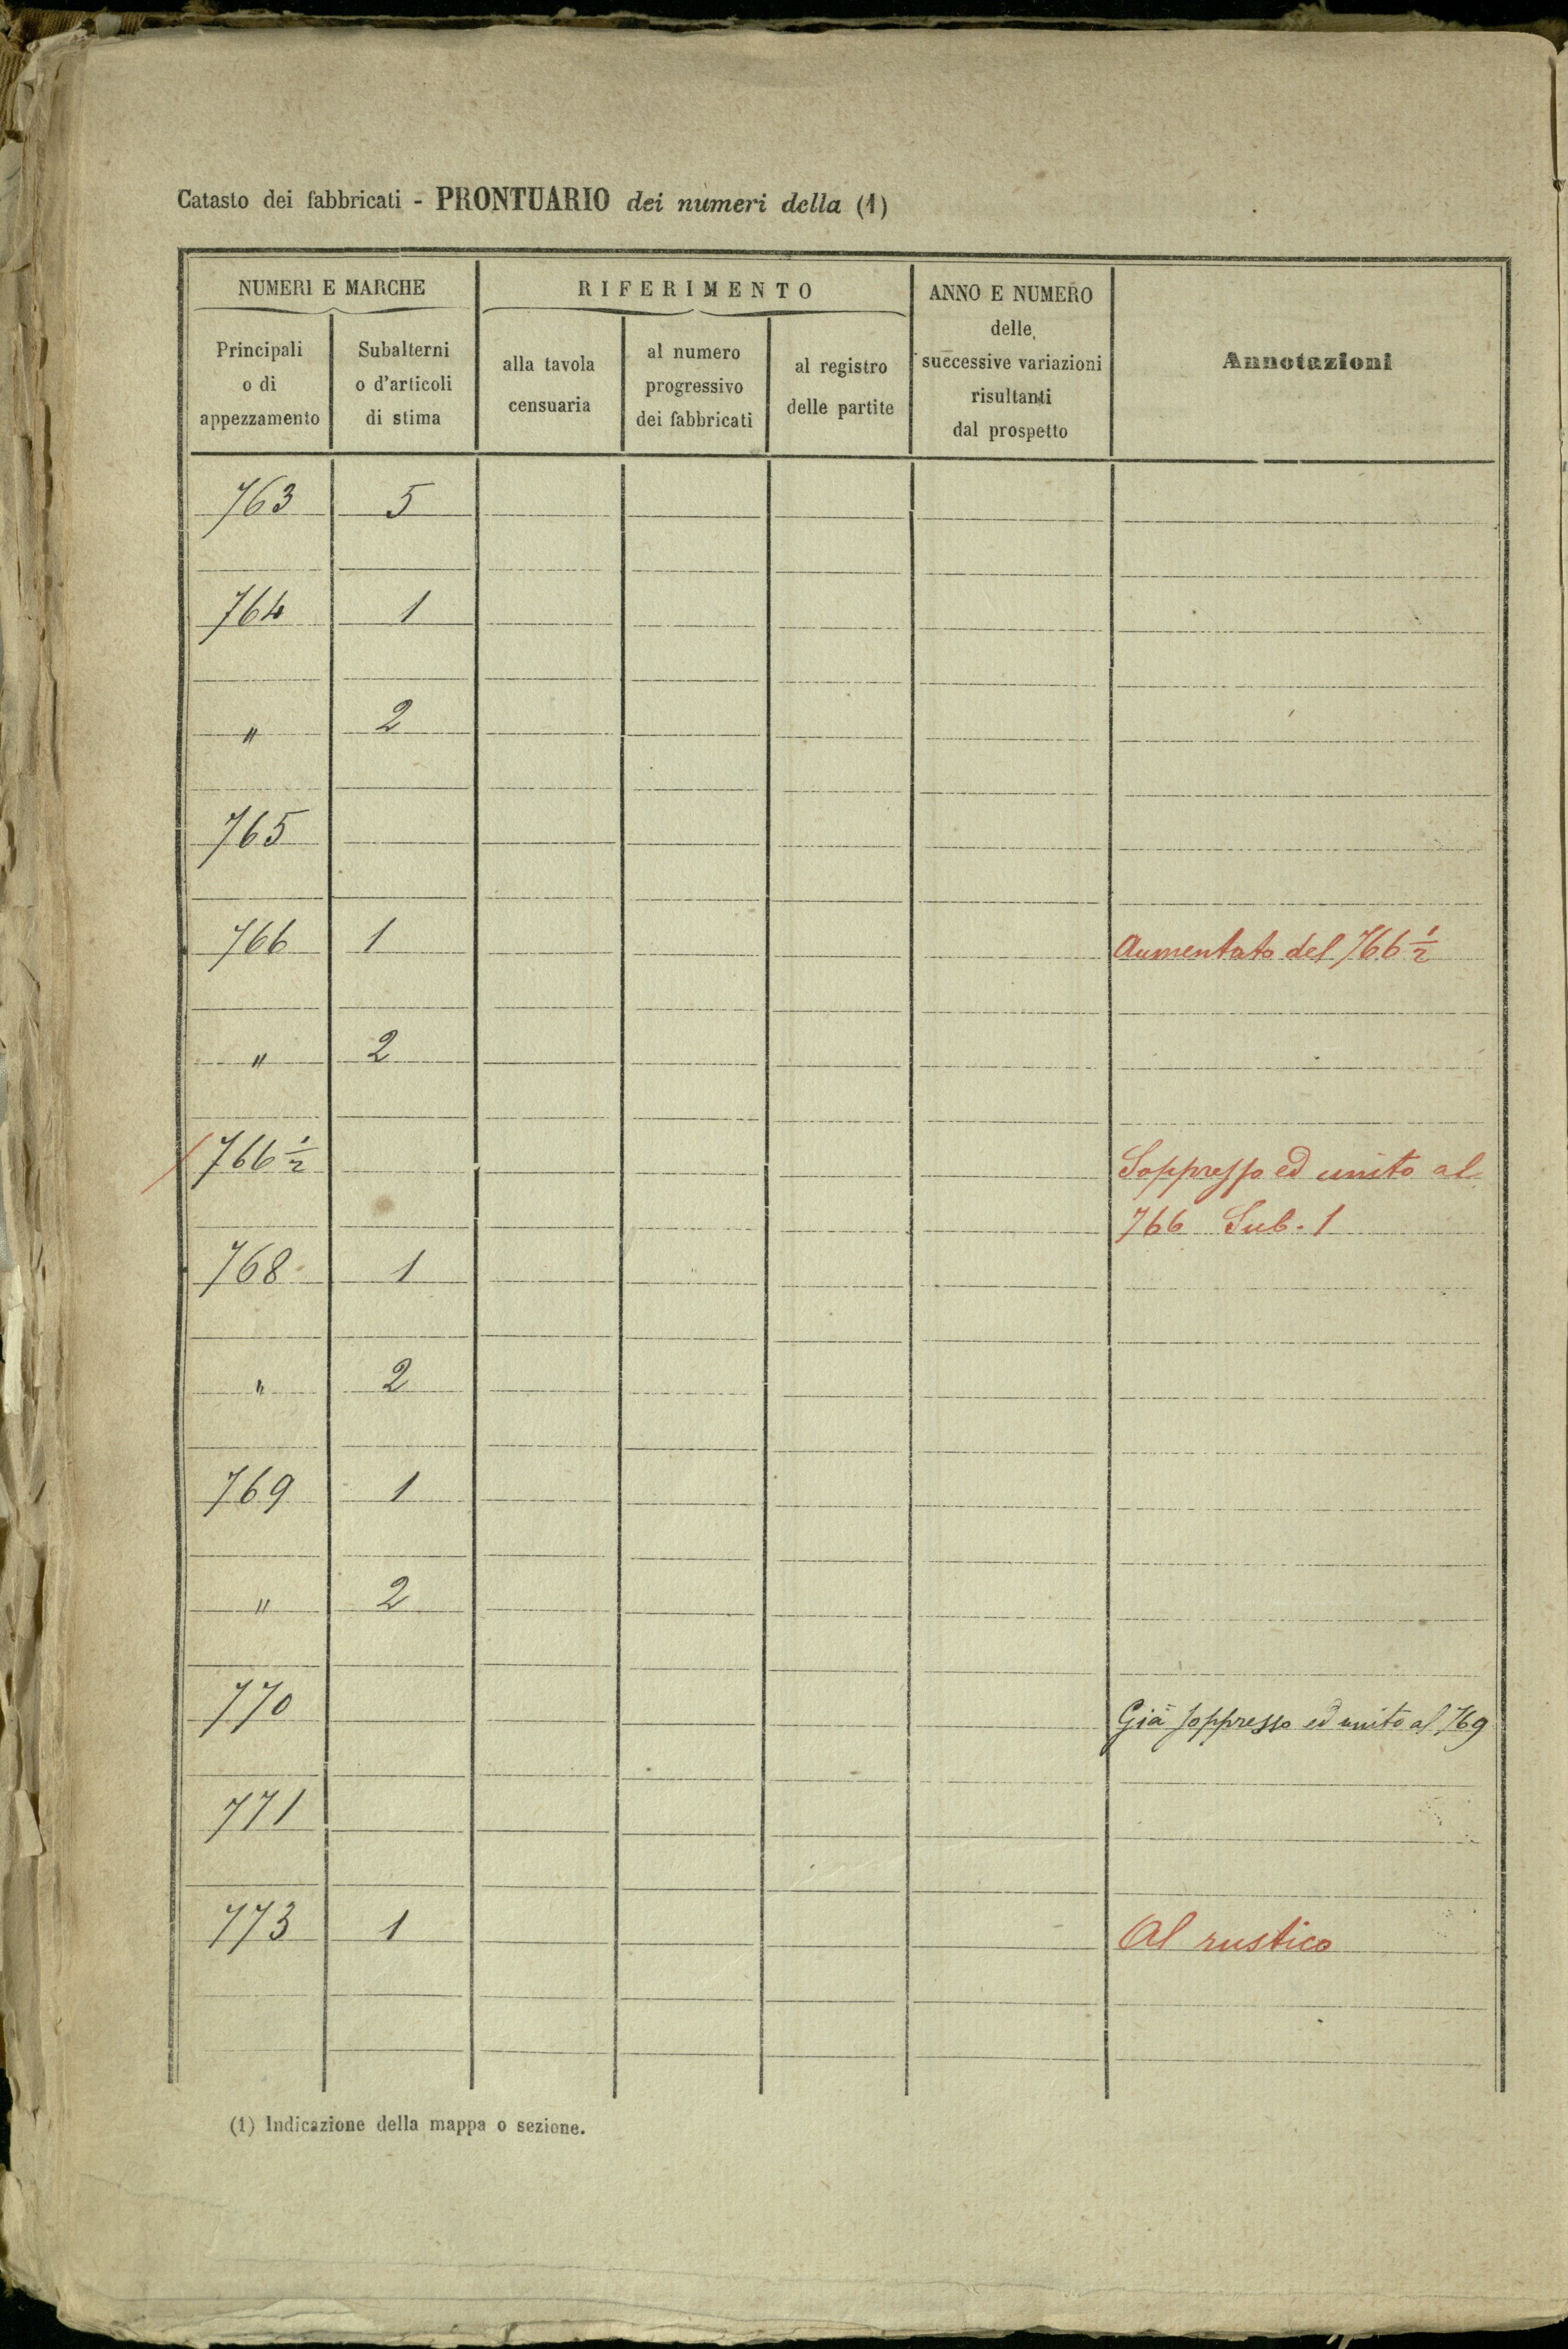 Catasto dei fabbricati - PRONTUARIO dei numeri della (1)
NUMERI E MARCHE
RIFERIMENTO
ANNO E NUMERO
delle
successive variazioni
risultanti
dal prospetto
Annotazioni
Principali
o di
appezzamento
Subalterni
o d'articoli
di stima
alla tavola
censuaria
al numero
progressivo
dei fabbricati
al registro
delle partite
763 5
764 1
" 2
765
766 1 Aumentato del 766 1/2
" 2
766 1/2 Soppresso ed unito al
766 Sub. 1
768 1
" 2
769 1
" 2
770 Già soppresso ed unito al 769
771
773 1 Al rustico
(1) Indicazione della mappa o sezione.